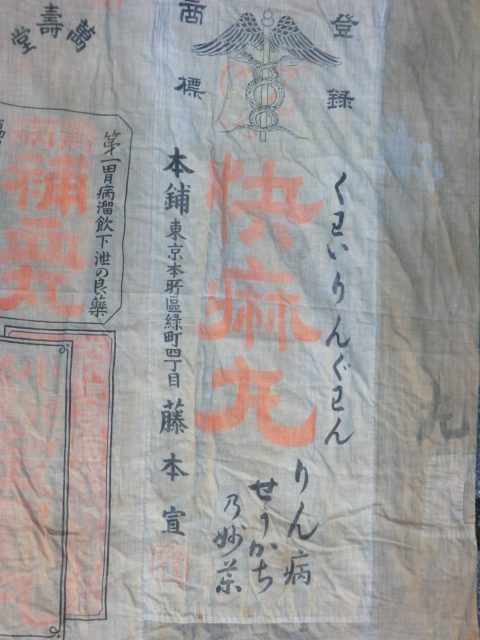 登録
商標
くわいりんぐわん
快痳丸
りん病
せうかち
乃妙薬
本舗 東京本所區緑町四丁目 藤本宣
萬壽堂
第一胃病溜飲下泄の良藥
補血丸
丸